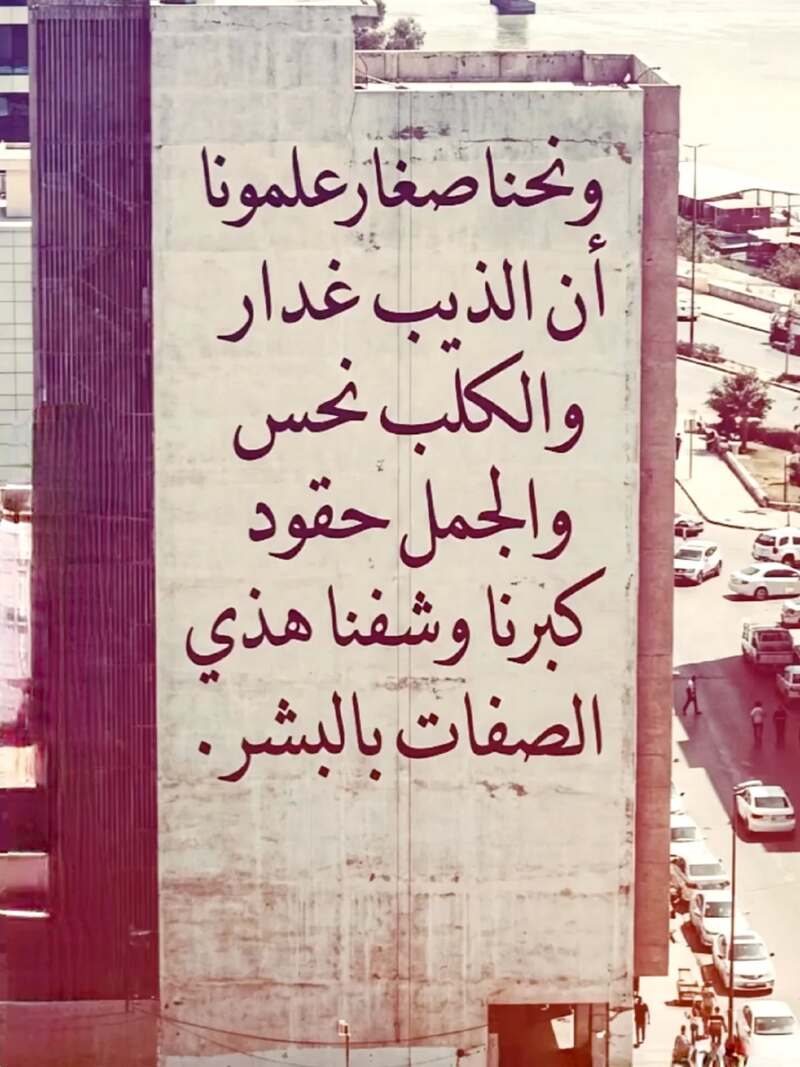 ونحنا صغار علمونا
أن الذيب غدار
والكلب نحس
والجمل حقود
كبرنا وشفنا هذي
الصفات بالبشر.